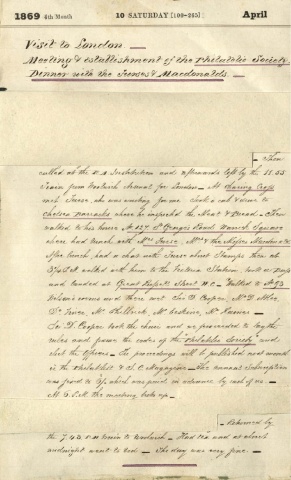 1869 4th Month 10 SATURDAY [100-265] April
Visit to London.
Meeting & establishment of the Philatelic Society.
Dinner with the Macdonalds.
Then
called at the R A Institution and afterwards left by the 11.55
Train from Woolwich Arsenal for London - At Charing Cross
met who was waiting for me. Took a cab & went to
Chelsea Barracks where he inspected the Meat & Bread. Then
walked to his house At 127 St George's Road Warwick Square
where had lunch with Mrs Mrs & the Misses
After lunch, had a chat with about Stamps Then at
walked with him to the Victoria Station, took a
and landed at Great Street W.C. - Walked to A 93
rooms and there met Sir D Cooper,
Dr Mr Philbrick, Mr
Sir D. Cooper took the chair and we proceeded to lay the
rules and frame the codes of the "Philatelic Society" and
elect the Officers. The proceedings will be published next month
in the Philatelist & S.C. Magazine - The annual Subscription
was fixed to 5/, which was paid in advance by each of us -
At 5 the meeting broke up -
Returned by
the 7.45 P.M. train to Woolwich - Had tea and at about
midnight went to bed - The day was very fine -